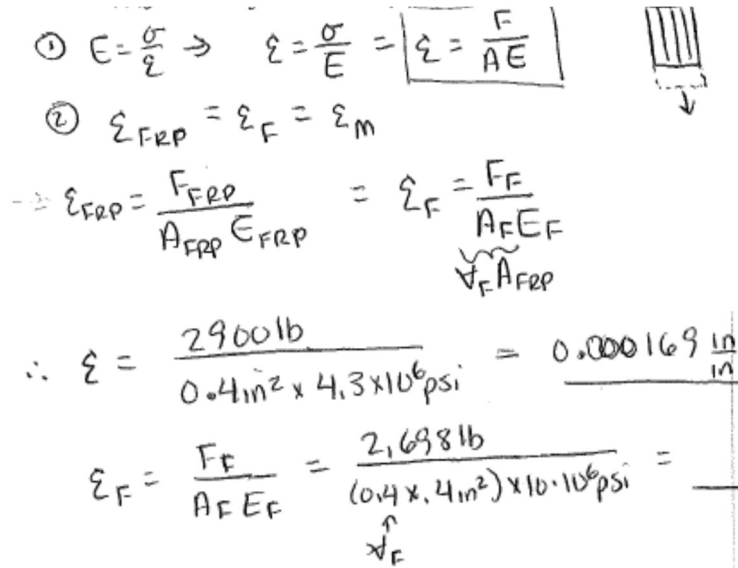 ① E = σ/ε → ε = σ/E = ε = F/AE
② ε_FRP = ε_F = ε_M
→ ε_FRP = F_FRP/(A_FRP E_FRP) = ε_F = F_F/(A_F E_F)
V_F A_FRP
∴ ε = 2900 lb/(0.4 in² x 4.3x10⁶ psi) = 0.000169 in/in
ε_F = F_F/(A_F E_F) = 2,698 lb/((0.4 x .4 in²) x 10·10⁶ psi) =
V_F